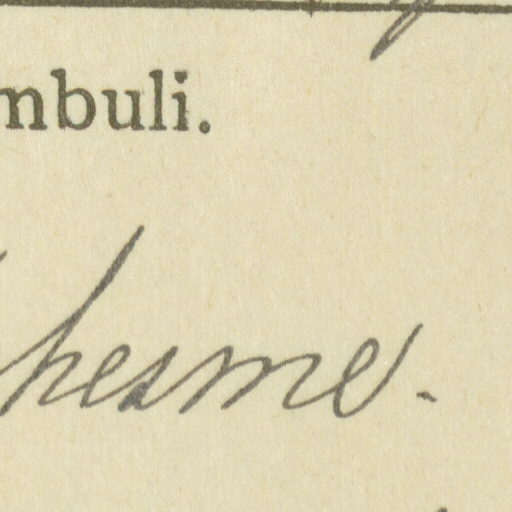 mbuli.
hesme.